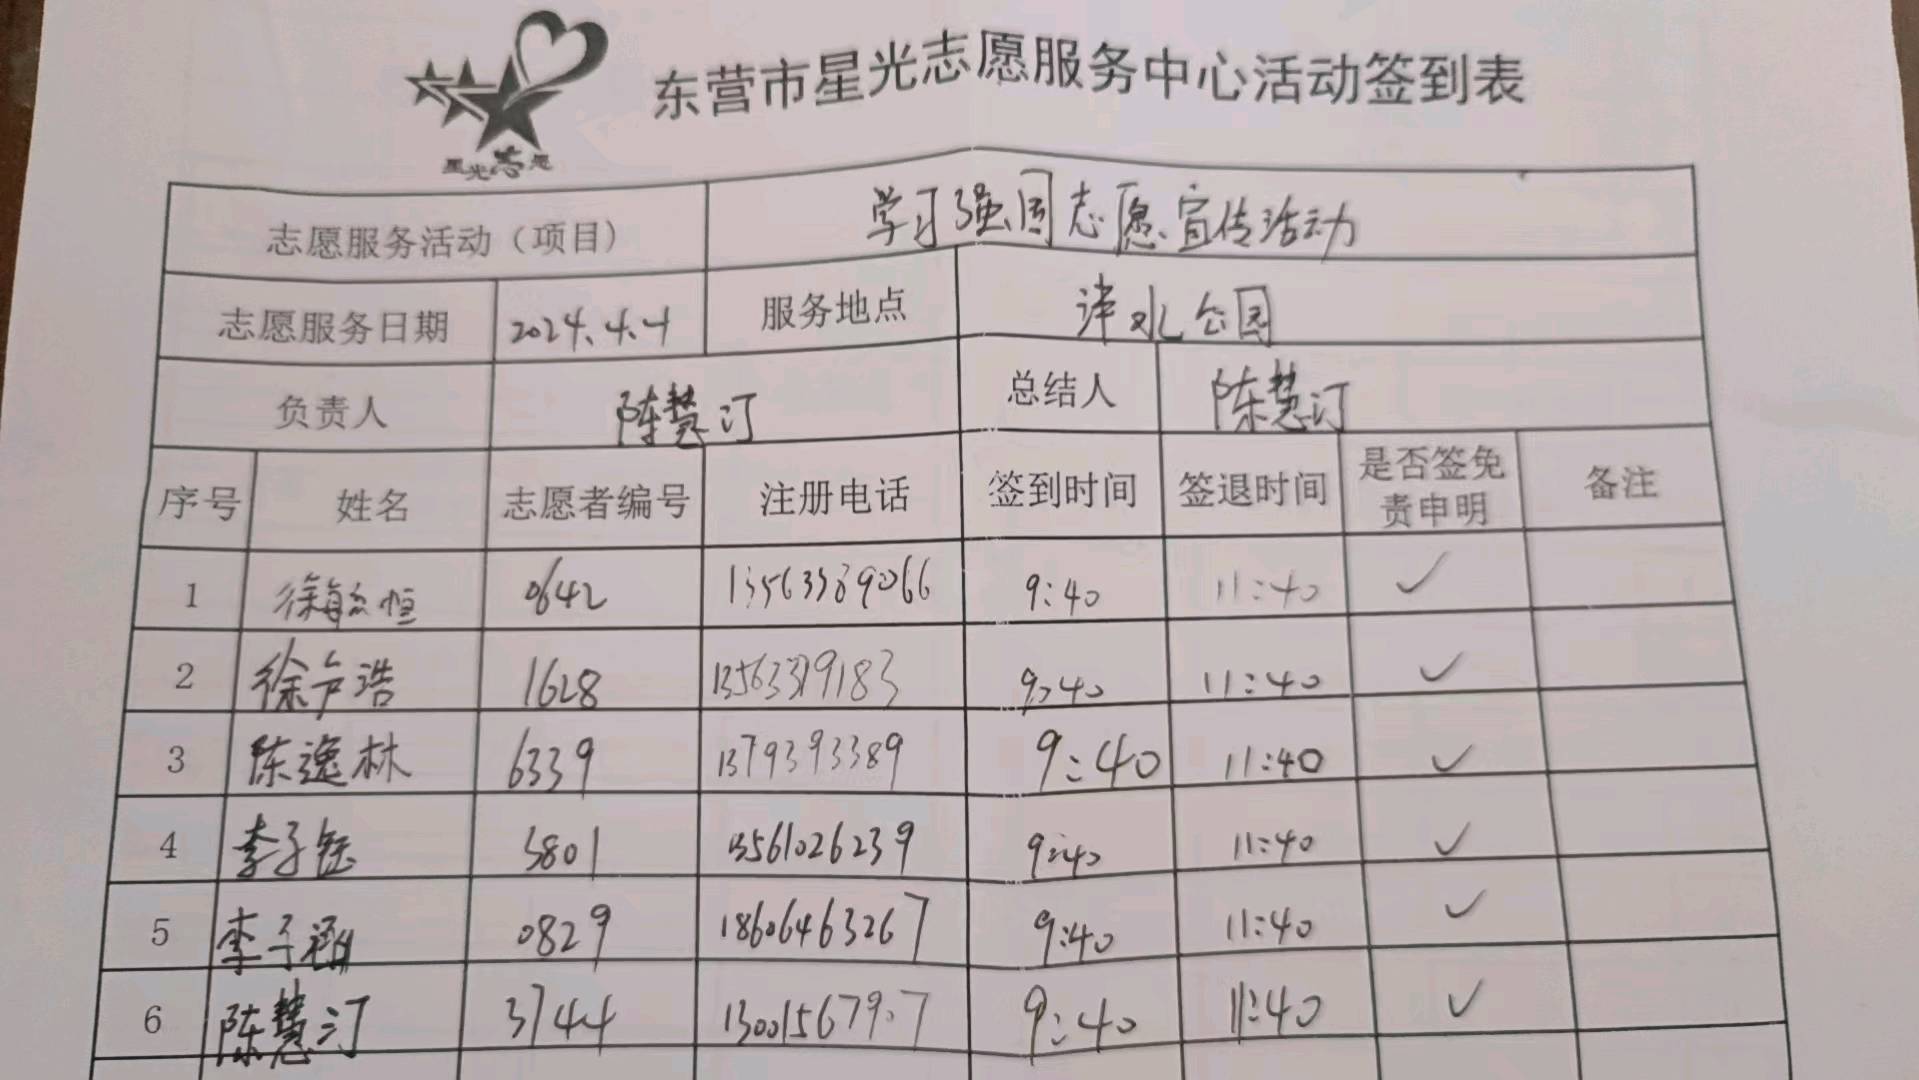 东营市星光志愿服务中心活动签到表
星光志愿
志愿服务活动（项目） 学习强国志愿宣传活动
志愿服务日期 2024.4.4 服务地点 津水公园
负责人 陈慧汀 总结人 陈慧汀
序号 姓名 志愿者编号 注册电话 签到时间 签退时间 是否签免责申明 备注
1 徐毓恒 0642 9:40 11:40 ✓
2 徐户浩 1628 9:40 11:40 ✓
3 陈逸林 6339 1379393389 9:40 11:40 ✓
4 李子钰 3801 13561026239 9:40 11:40 ✓
5 李子涵 0829 18606463267 9:40 11:40 ✓
6 陈慧汀 3744 13001567907 9:40 11:40 ✓